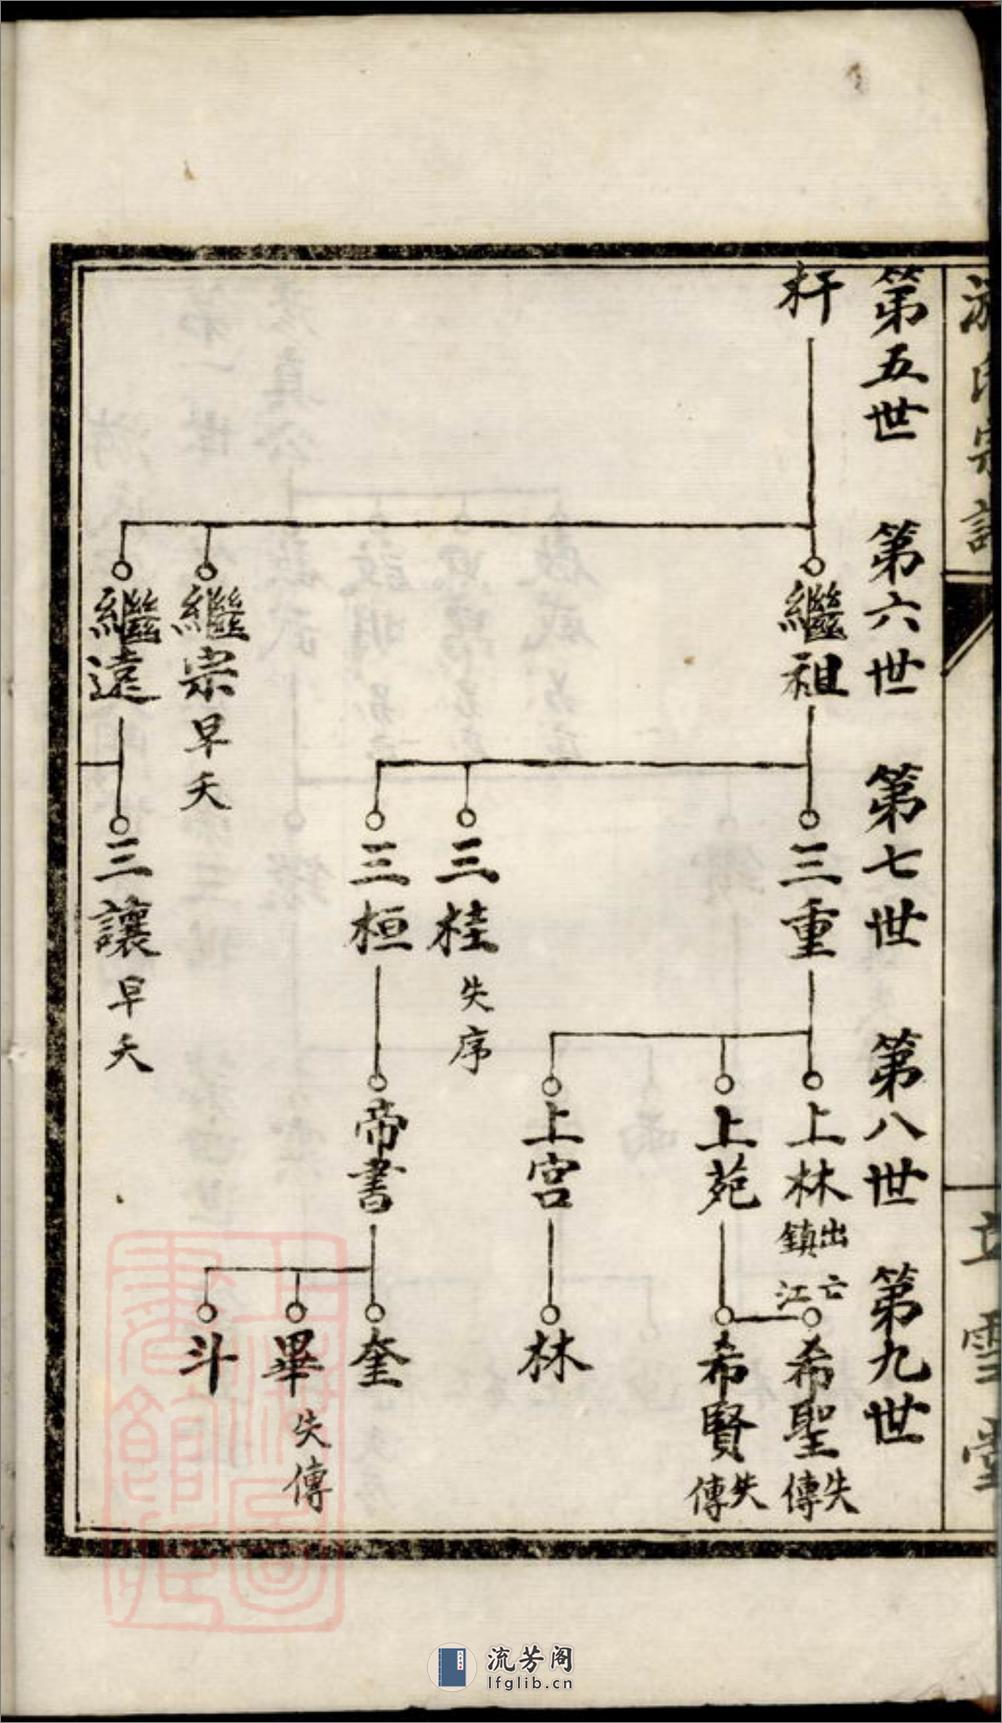 游氏宗譜
立雪堂
第五世
第六世
第七世
第八世
第九世
杆
繼祖
繼宗早夭
繼遠
三重
三桂失序
三桓
三讓早夭
上林出亡鎮江
上苑
上宮
帝書
希聖失傳
希賢失傳
林
奎
畢失傳
斗
上海圖書館藏
流芳阁
lfglib.cn